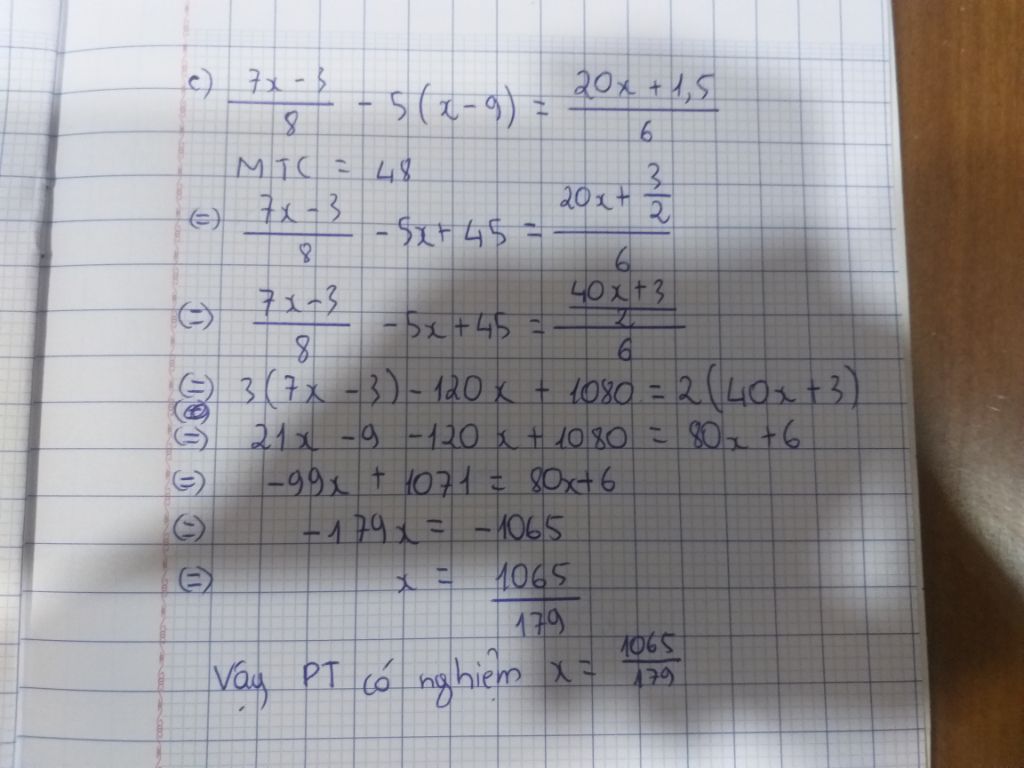 c) (7x - 3)/8 - 5(x - 9) = (20x + 1,5)/6
MTC = 48
(=) (7x - 3)/8 - 5x + 45 = (20x + 3/2)/6
(=) (7x - 3)/8 - 5x + 45 = ((40x + 3)/2)/6
(=) 3(7x - 3) - 120x + 1080 = 2(40x + 3)
(=) 21x - 9 - 120x + 1080 = 80x + 6
(=) -99x + 1071 = 80x + 6
(=) -179x = -1065
(=) x = 1065/179
Vậy PT có nghiệm x = 1065/179